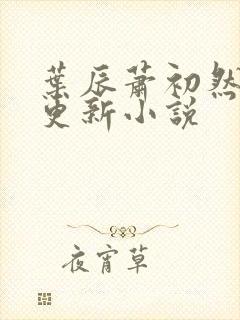 葉辰蕭初然
更新小説
夜宵草